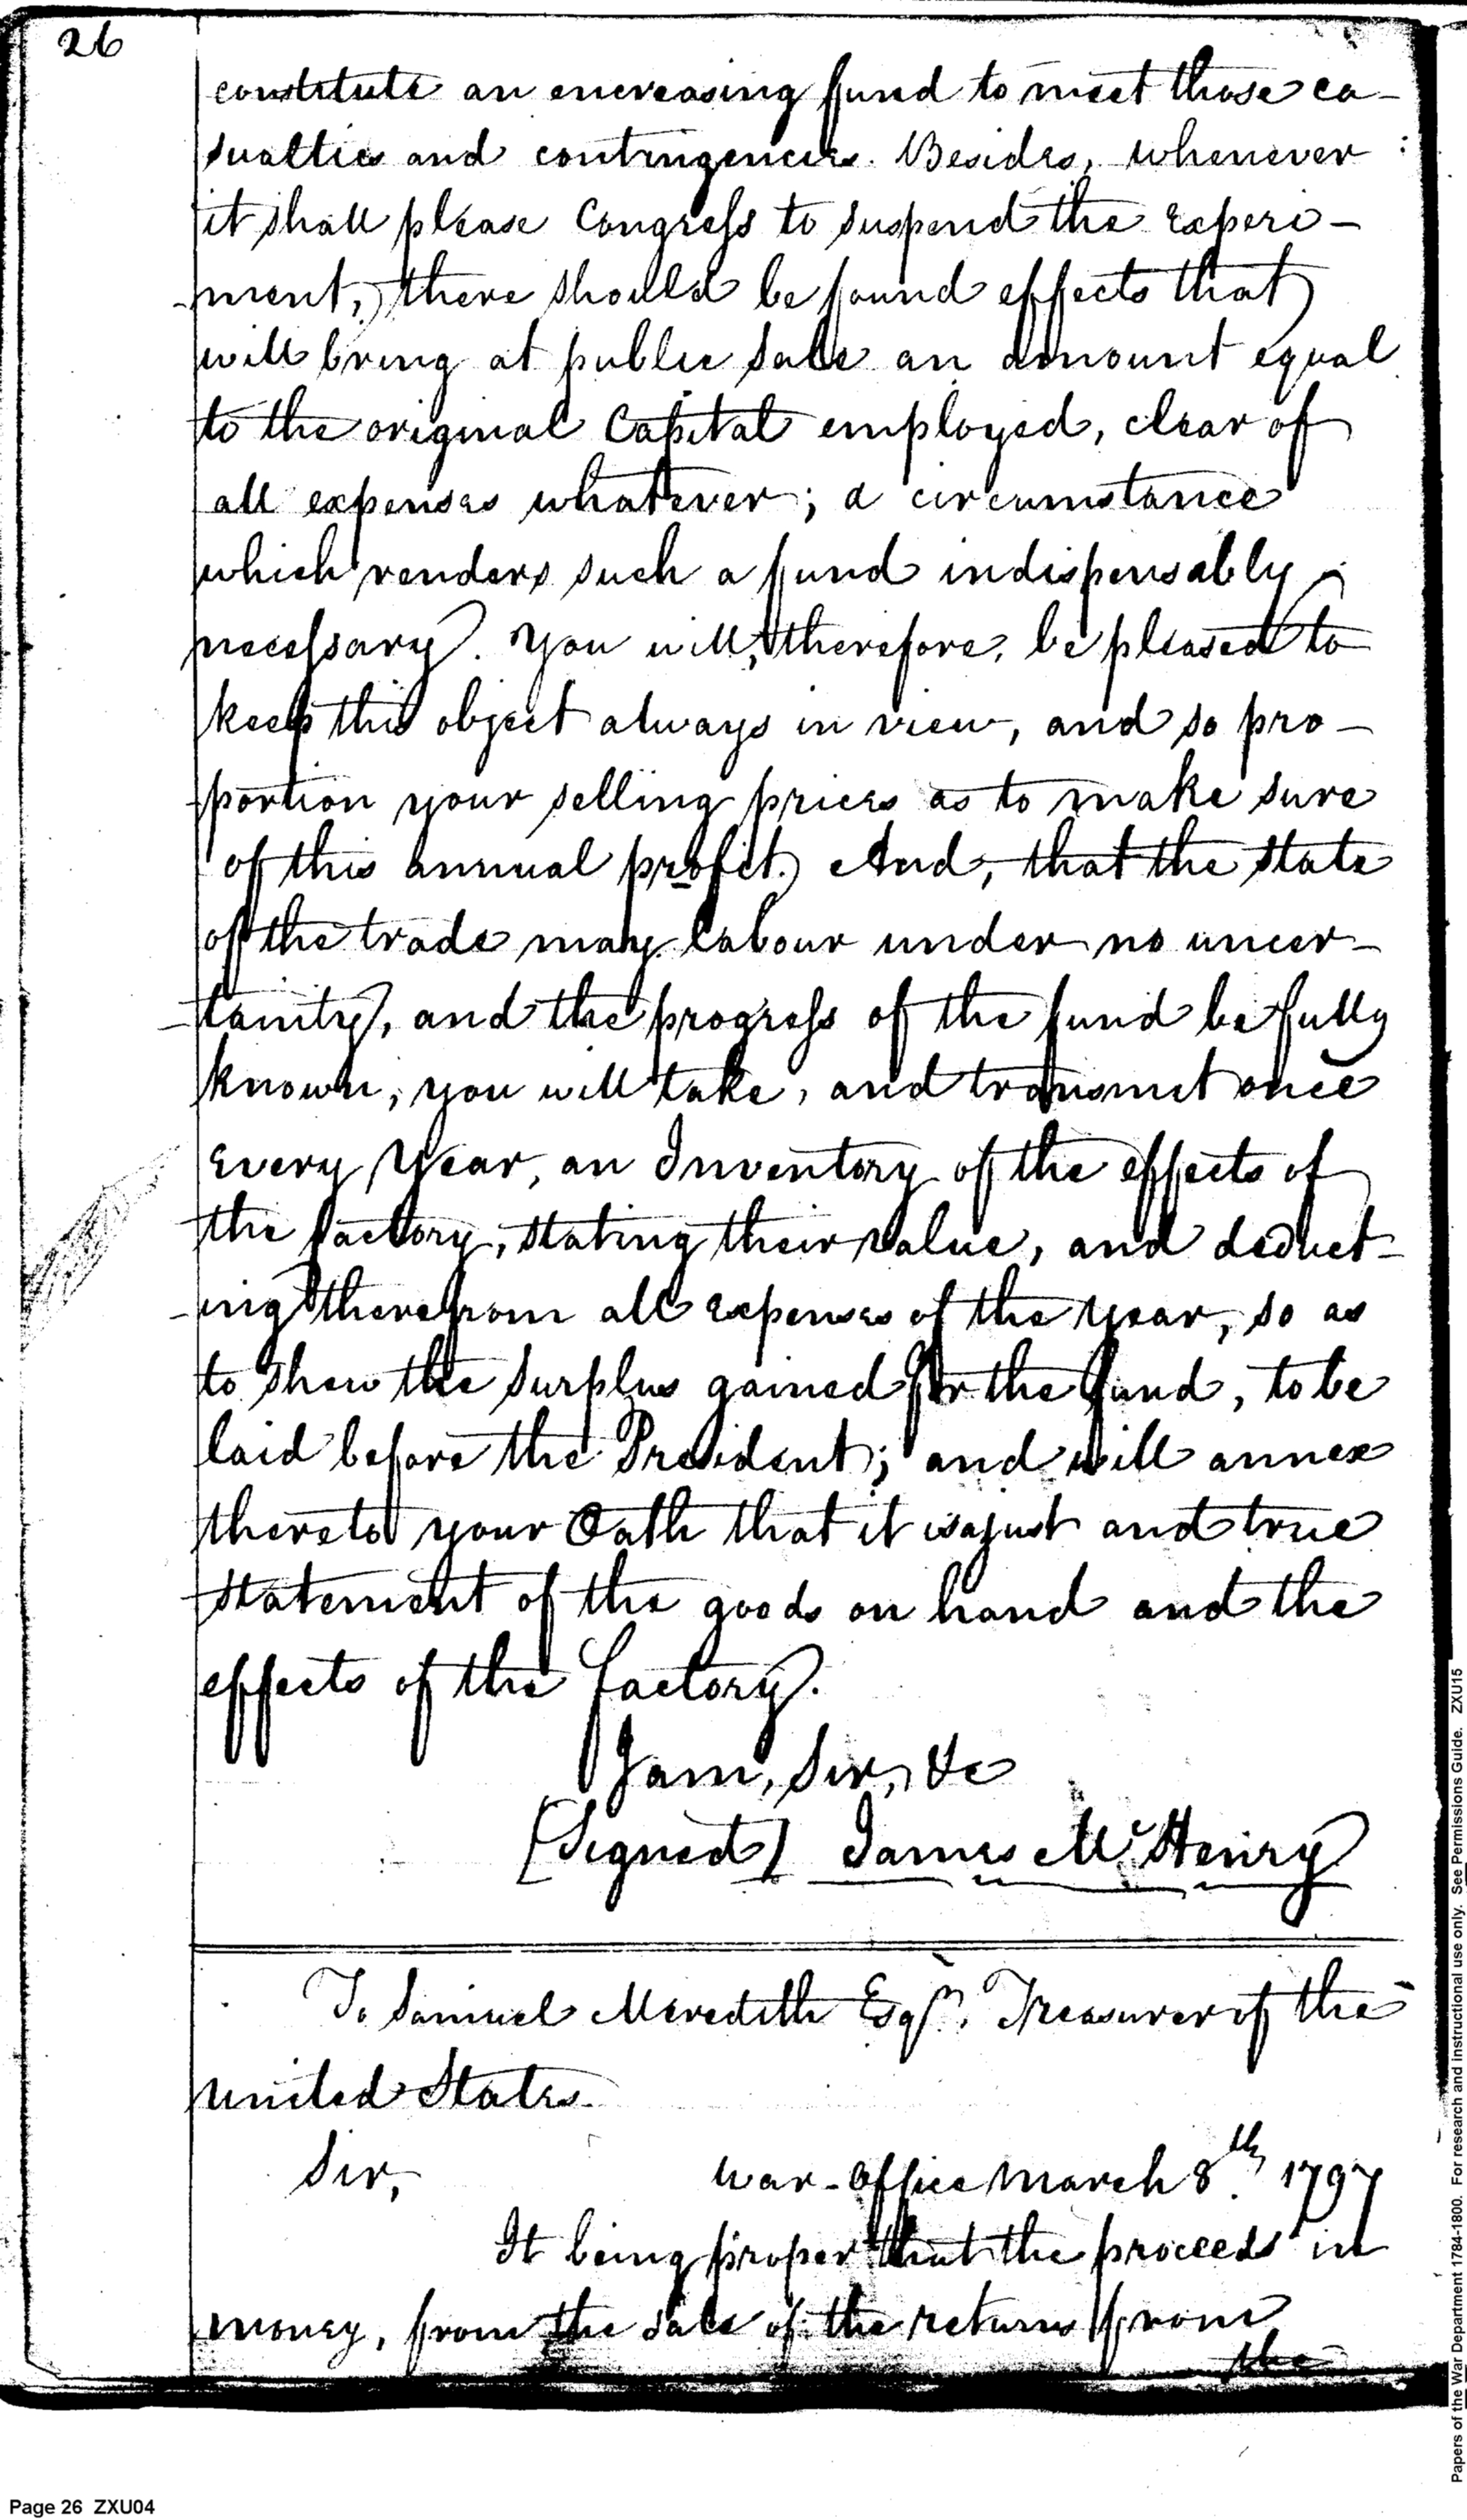 26
constitute an encreasing fund to meet those ca-
sualties and contingencies. Besides, whenever
it shall please Congress to suspend the experi-
-ment, there should be found effects that
will bring at public sale an amount equal
to the original Capital employed, clear of
all expenses whatever; a circumstance
which renders such a fund indispensably
necessary. You will, therefore, be pleased to
keep this object always in view, and so pro-
-portion your selling prices as to make sure
of this annual profit. And, that the state
of the trade may labour under no uncer-
-tanity, and the progress of the fund be fully
known, you will take, and transmit once
every year, an Inventory of the effects of
the factory, stating their value, and deduct-
-ing therefrom all expenses of the year, so as
to shew the surplus gained for the fund, to be
laid before the President; and will annex
thereto your Oath that it is a just and true
statement of the goods on hand and the
effects of the factory.
I am, Sir, &c
[Signed] James McHenry
To Samuel Meredith Esqr. Treasurer of the
United States.
Sir, War-Office March 8th. 1797
It being proper that the proceeds in
money, from the sale of the returns from
the
Page 26 ZXU04
Papers of the War Department 1784-1800. For research and instructional use only. See Permissions Guide. ZXU15